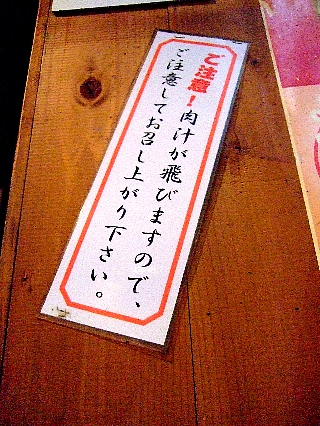 ご注意！肉汁が飛びますので、
ご注意してお召し上がり下さい。